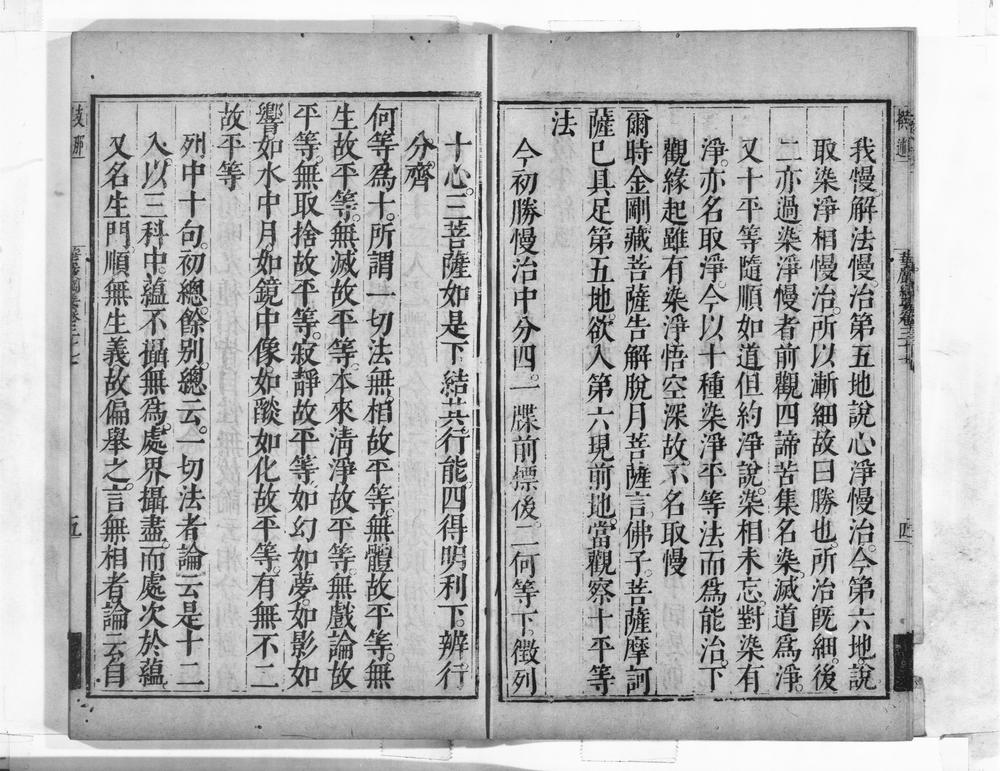 我慢解法慢。治第五地說心淨慢治。今第六地。說
取染淨相慢治。所以漸細故曰勝也。所治旣細。後
二亦過染淨慢者前觀四諦苦集名染。滅道爲淨。
又十平等隨順如道但約淨說。染相未忘。對染有
淨。亦名取淨。今以十種染淨平等法而爲能治。下
觀緣起雖有染淨悟空深故。不名取慢
爾時金剛藏菩薩告解脫月菩薩言。佛子。菩薩摩訶
薩已具足第五地。欲入第六現前地。當觀察十平等
法
今初勝慢治中分四。一牒前標後。二何等下。徵列
十心。三菩薩如是下。結其行能。四得明利下。辨行
分齊
何等爲十。所謂一切法無相故平等。無體故平等。無
生故平等。無滅故平等。本來清淨故平等。無戲論故
平等。無取捨故平等。寂靜故平等。如幻如夢。如影如
響。如水中月。如鏡中像。如燄如化故平等。有無不二
故平等
列中十句。初總。餘别。總云。一切法者論云是十二
入。以三科中。蘊不攝無爲。處界攝盡。而處次於蘊。
又名生門順無生義故偏舉之。言無相者。論云自